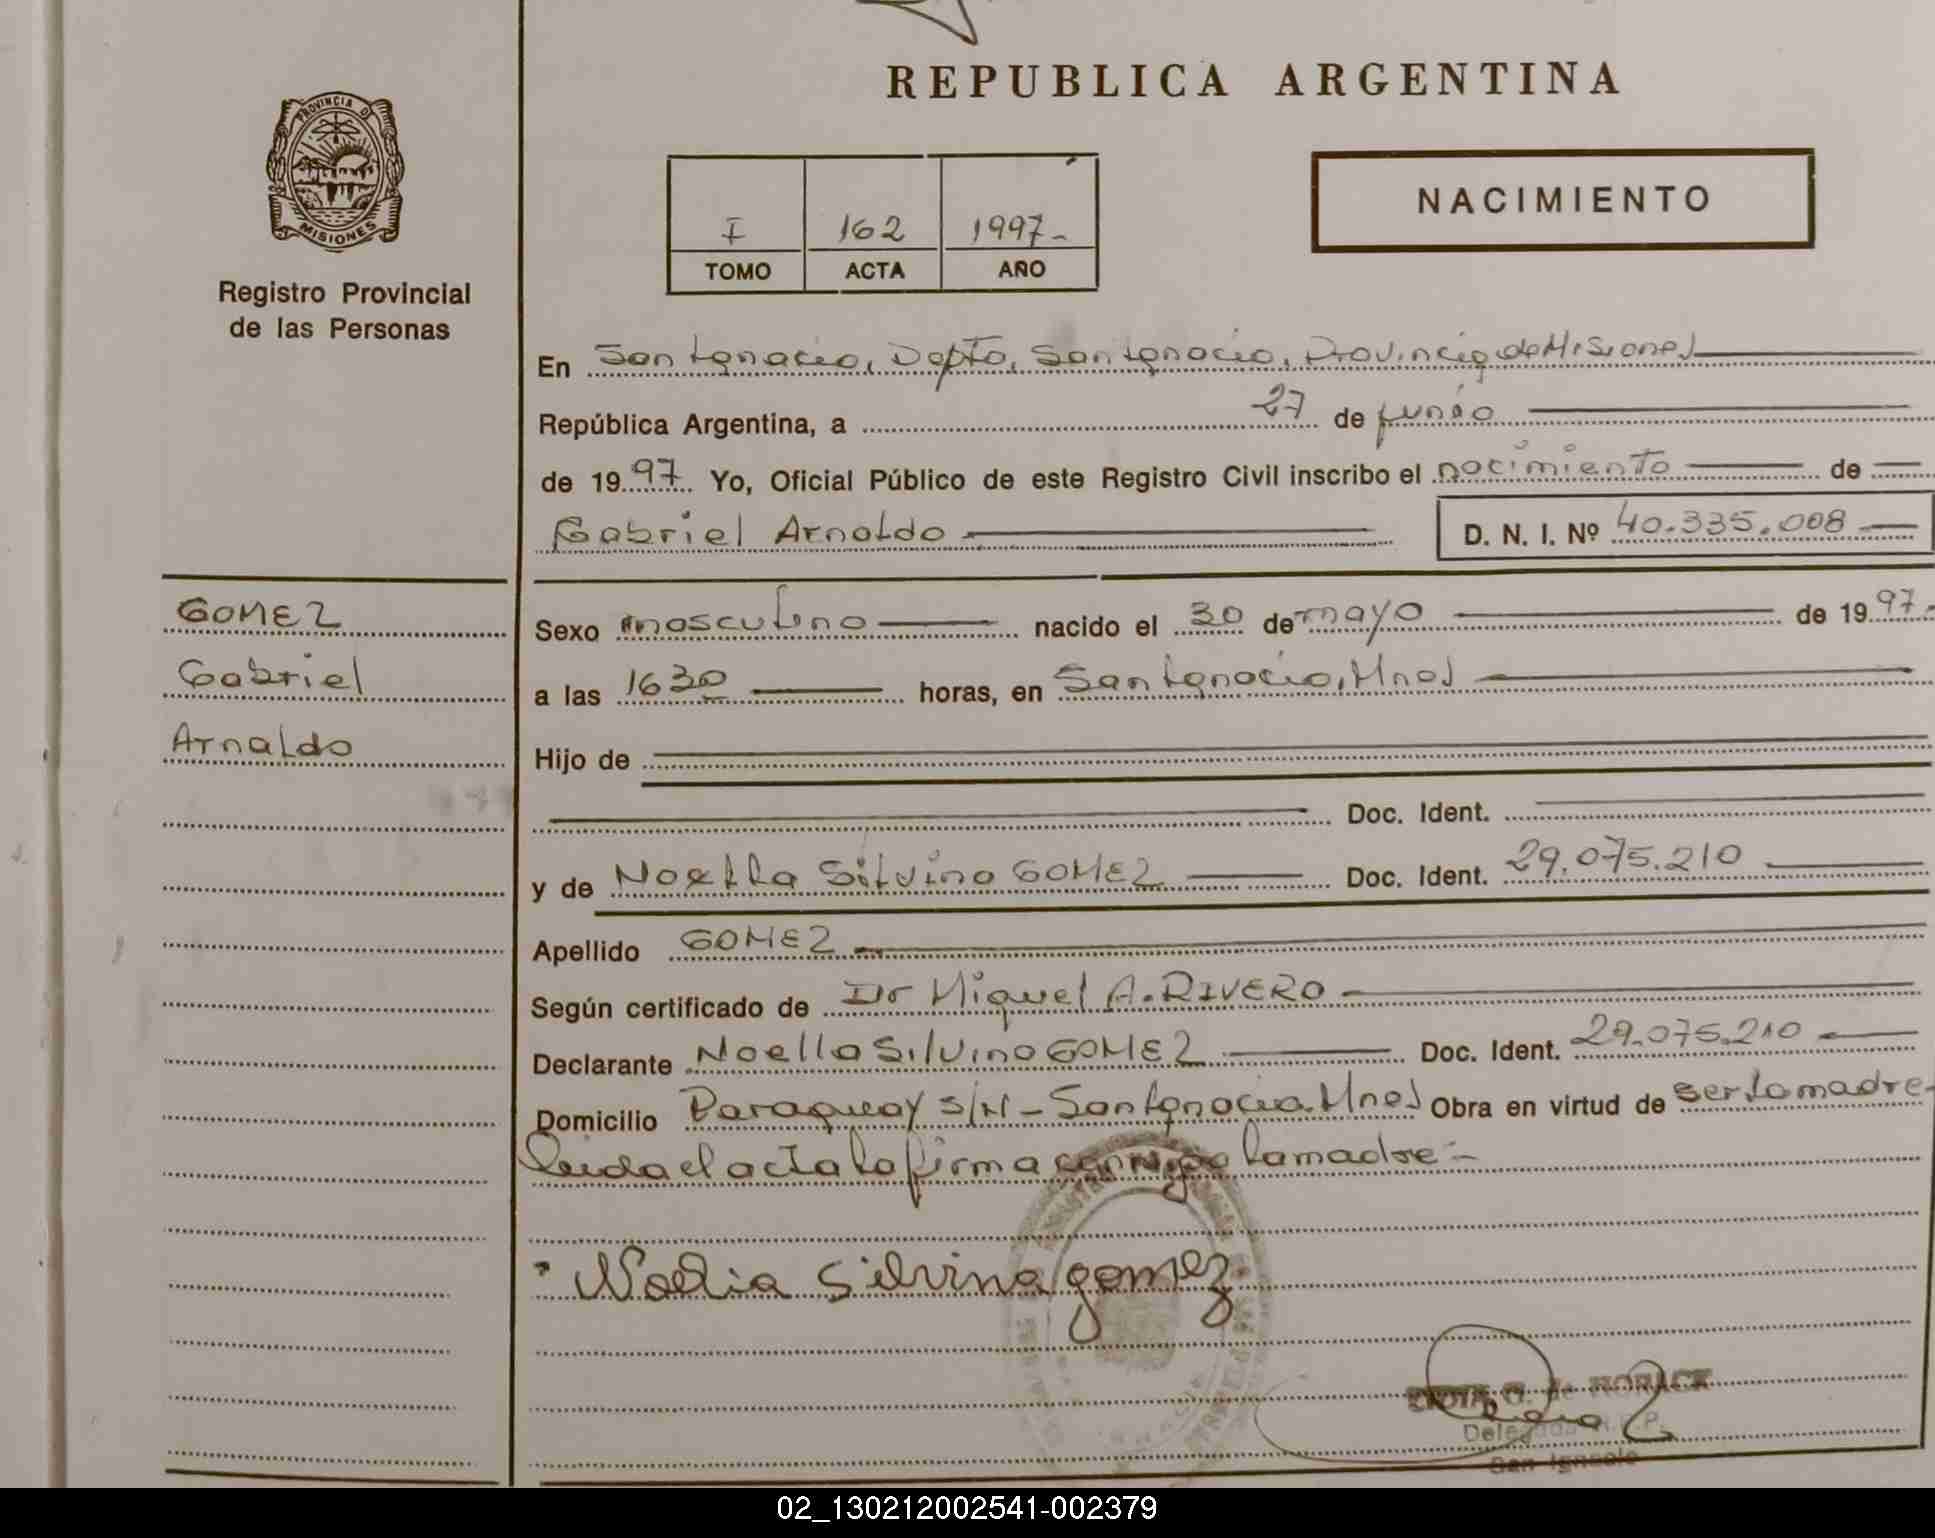 REPUBLICA ARGENTINA
PROVINCIA DE
MISIONES
Registro Provincial
de las Personas
I 162 1997-
TOMO ACTA AÑO
NACIMIENTO
En San Ignacio, Depto, San Ignacio, Provincia de Misiones
República Argentina, a 27 de junio
de 1997 Yo, Oficial Público de este Registro Civil inscribo el nacimiento de
Gabriel Arnaldo D. N. I. Nº 40.335.008
GOMEZ
Gabriel
Arnaldo
Sexo masculino nacido el 30 de mayo de 1997-
a las 1630 horas, en San Ignacio, Mnes
Hijo de
Doc. Ident.
y de Noelia Silvina GOMEZ Doc. Ident. 29.075.210
Apellido GOMEZ
Según certificado de Dr Miguel A. RIVERO
Declarante Noelia Silvina GOMEZ Doc. Ident. 29.075.210
Domicilio Paraguay S/N - San Ignacio. Mnes Obra en virtud de ser la madre-
Leida el acta la firma conmigo la madre-
Noelia Silvina gomez
G. de HORACK
San Ignacio
02_130212002541-002379